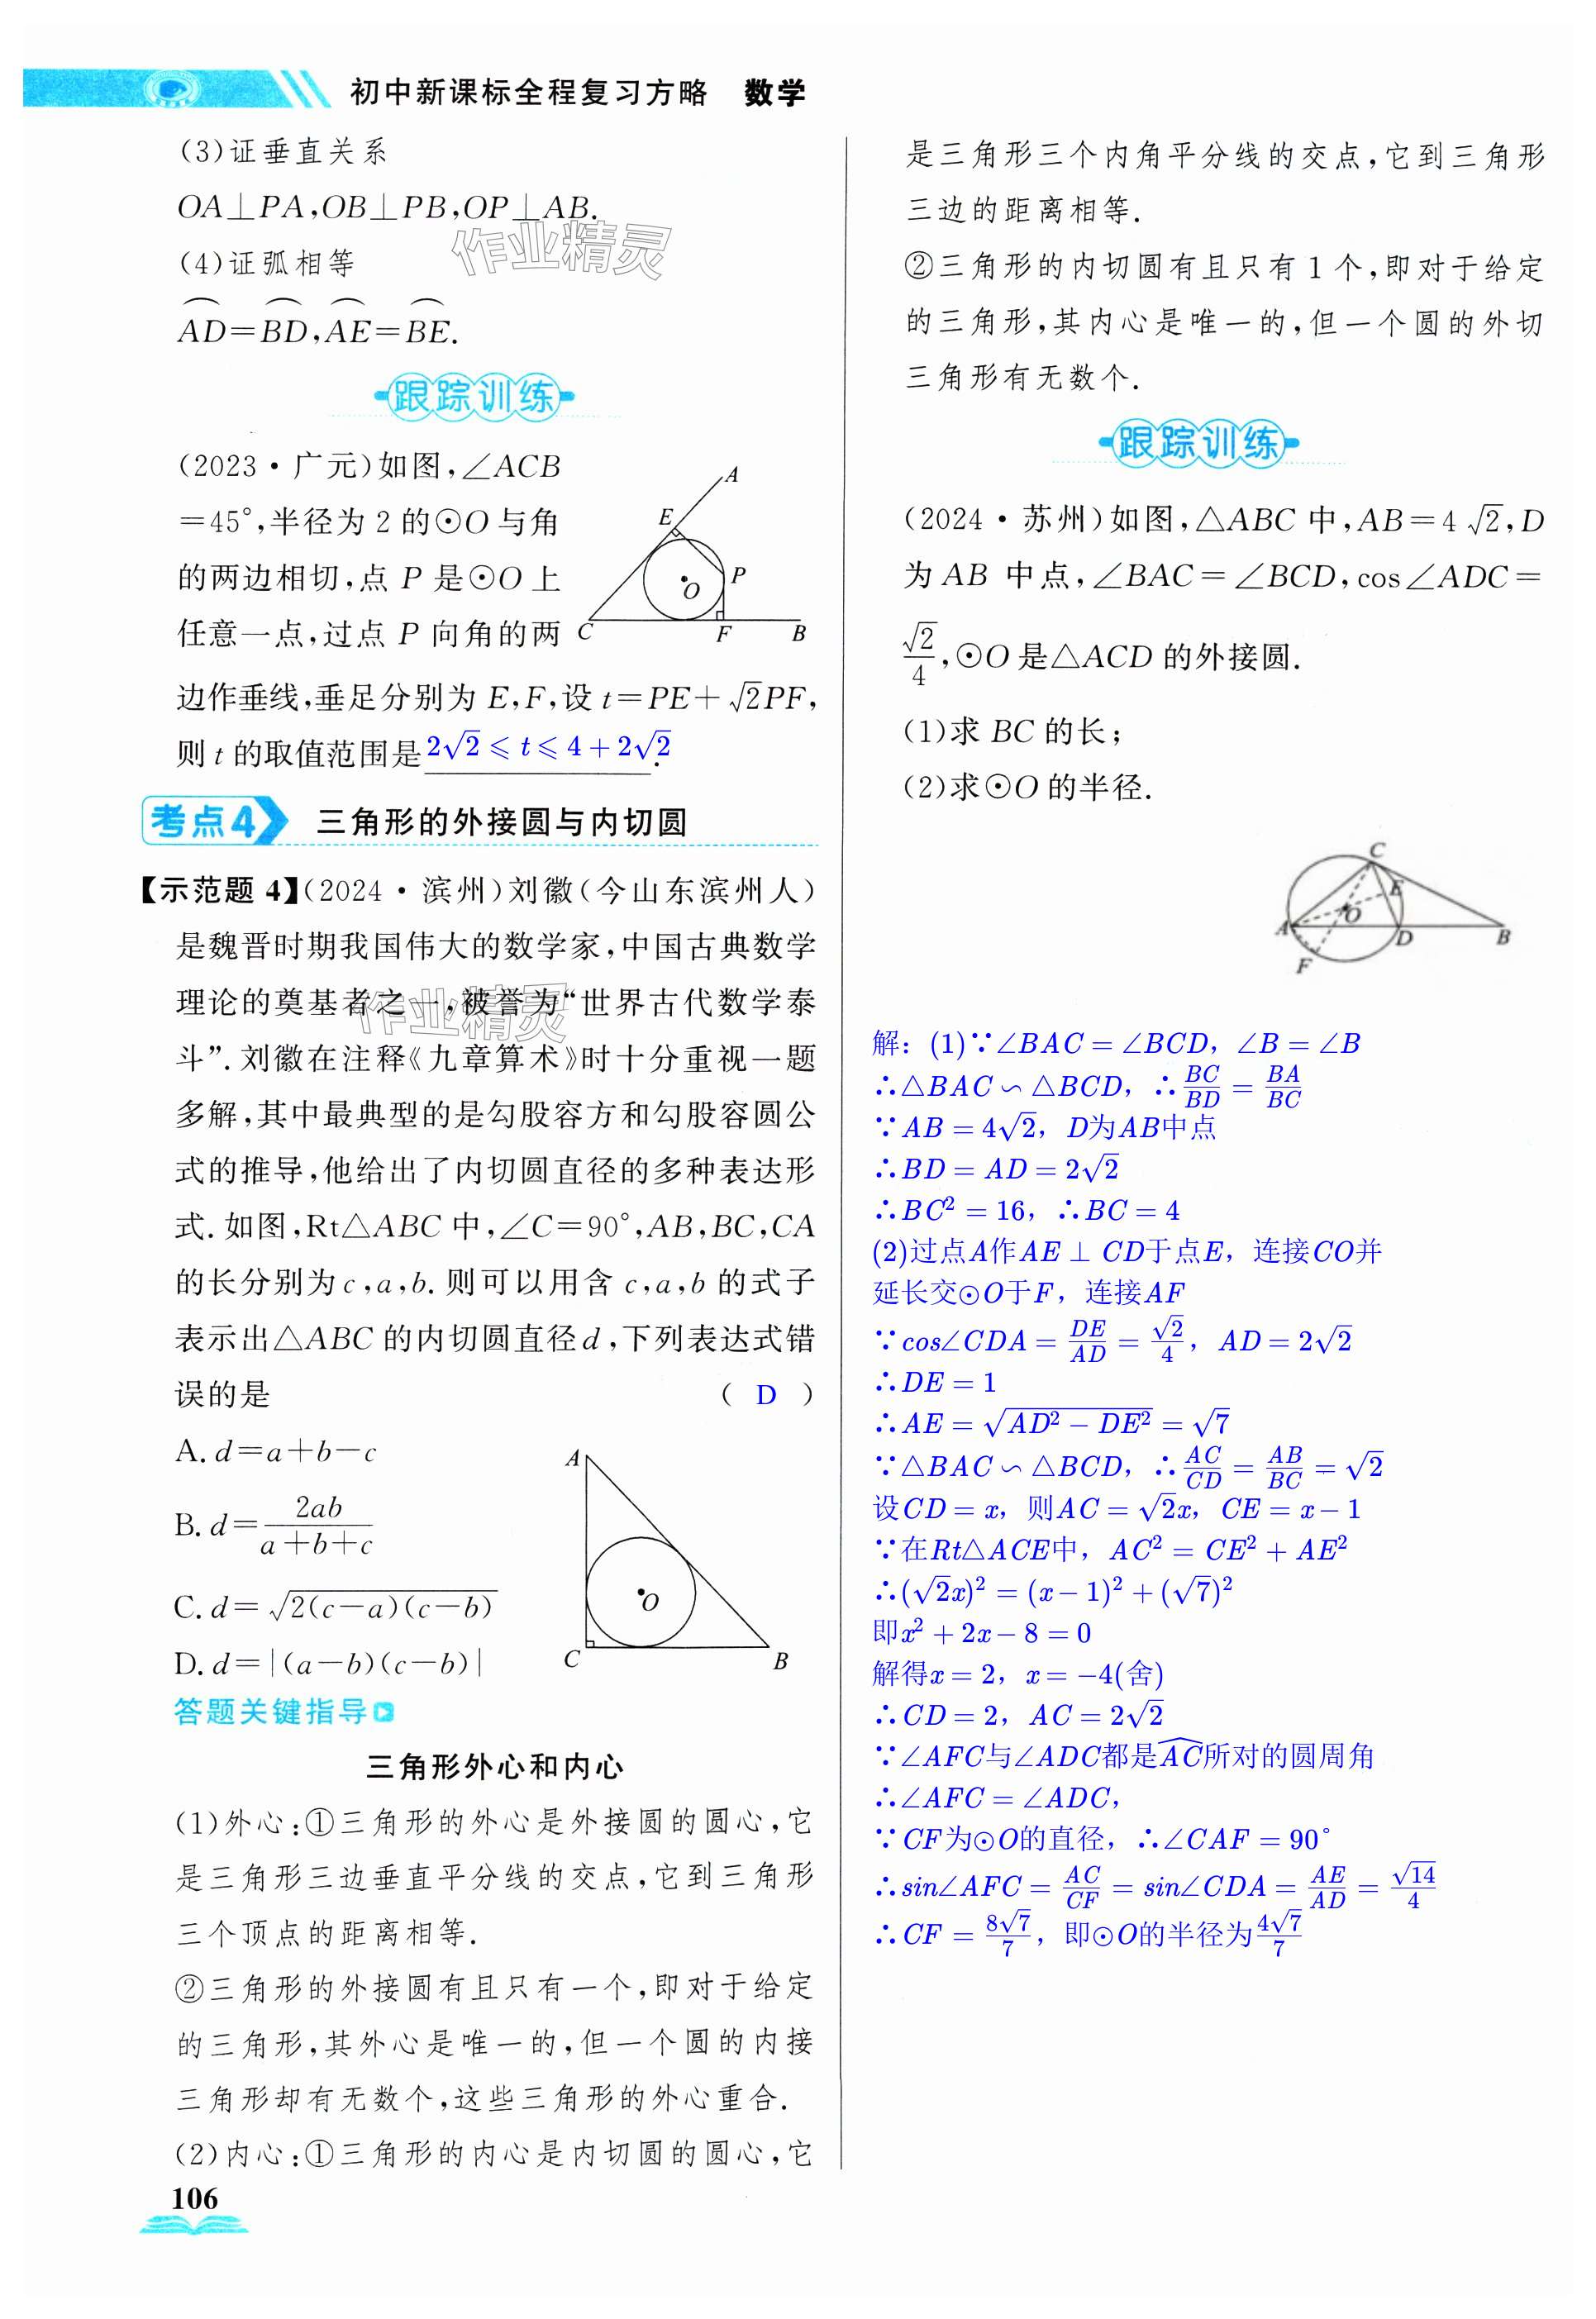 初中新课标全程复习方略 数学
(3)证垂直关系
OA⊥PA,OB⊥PB,OP⊥AB.
作业精灵
(4)证弧相等
⌒AD=⌒BD,⌒AE=⌒BE.
跟踪训练
(2023·广元)如图,∠ACB
=45°,半径为 2 的⊙O 与角
的两边相切,点 P 是⊙O 上
任意一点,过点 P 向角的两
边作垂线,垂足分别为 E,F,设 t=PE+√2PF,
则 t 的取值范围是2√2⩽t⩽4+2√2.
A
E
P
O
C
F
B
考点4 三角形的外接圆与内切圆
【示范题 4】(2024·滨州)刘徽(今山东滨州人)
是魏晋时期我国伟大的数学家,中国古典数学
理论的奠基者之一,被誉为“世界古代数学泰
作业精灵
斗”.刘徽在注释《九章算术》时十分重视一题
多解,其中最典型的是勾股容方和勾股容圆公
式的推导,他给出了内切圆直径的多种表达形
式.如图,Rt△ABC 中,∠C=90°,AB,BC,CA
的长分别为c,a,b.则可以用含 c,a,b 的式子
表示出△ABC 的内切圆直径d,下列表达式错
误的是 ( D )
A. d=a+b-c
B. d=2ab/(a+b+c)
C. d=√(2(c-a)(c-b))
D. d=|(a-b)(c-b)|
A
O
C
B
答题关键指导
三角形外心和内心
(1)外心:①三角形的外心是外接圆的圆心,它
是三角形三边垂直平分线的交点,它到三角形
三个顶点的距离相等.
②三角形的外接圆有且只有一个,即对于给定
的三角形,其外心是唯一的,但一个圆的内接
三角形却有无数个,这些三角形的外心重合.
(2)内心:①三角形的内心是内切圆的圆心,它
106
是三角形三个内角平分线的交点,它到三角形
三边的距离相等.
②三角形的内切圆有且只有 1 个,即对于给定
的三角形,其内心是唯一的,但一个圆的外切
三角形有无数个.
跟踪训练
(2024·苏州)如图,△ABC 中,AB=4√2,D
为 AB 中点,∠BAC=∠BCD,cos∠ADC=
√2/4,⊙O 是△ACD 的外接圆.
(1)求 BC 的长;
(2)求⊙O 的半径.
C
E
O
A
D
B
F
解：(1)∵∠BAC=∠BCD，∠B=∠B
∴△BAC∽△BCD，∴BC/BD=BA/BC
∵AB=4√2，D为AB中点
∴BD=AD=2√2
∴BC²=16，∴BC=4
(2)过点A作AE⊥CD于点E，连接CO并
延长交⊙O于F，连接AF
∵cos∠CDA=DE/AD=√2/4，AD=2√2
∴DE=1
∴AE=√(AD²-DE²)=√7
∵△BAC∽△BCD，∴AC/CD=AB/BC=√2
设CD=x，则AC=√2x，CE=x-1
∵在Rt△ACE中，AC²=CE²+AE²
∴(√2x)²=(x-1)²+(√7)²
即x²+2x-8=0
解得x=2，x=-4(舍)
∴CD=2，AC=2√2
∵∠AFC与∠ADC都是⌒AC所对的圆周角
∴∠AFC=∠ADC，
∵CF为⊙O的直径，∴∠CAF=90°
∴sin∠AFC=AC/CF=sin∠CDA=AE/AD=√14/4
∴CF=8√7/7，即⊙O的半径为4√7/7